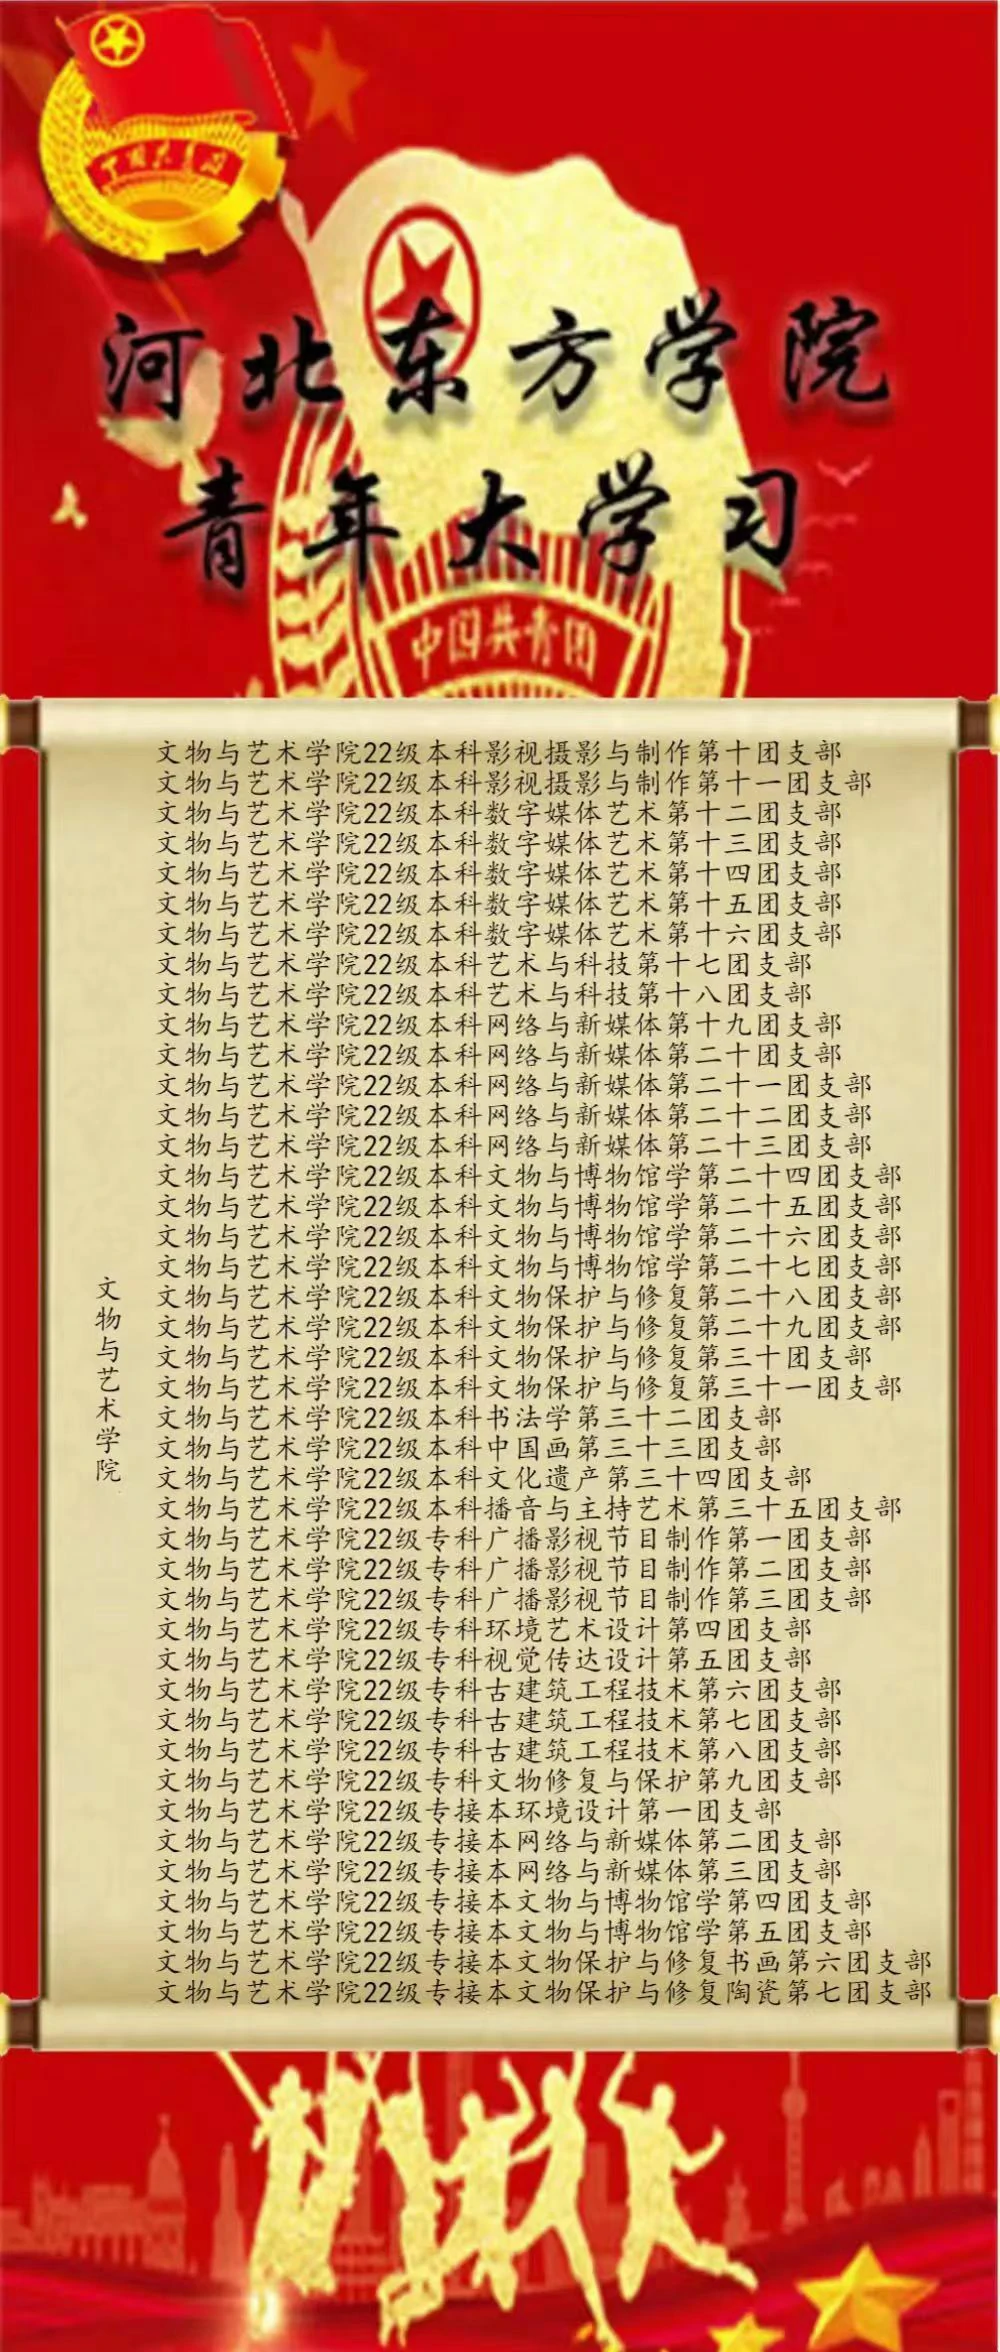 中国共青团
河北东方学院
青年大学习
中国共青团
文物与艺术学院
文物与艺术学院22级本科影视摄影与制作第十团支部
文物与艺术学院22级本科影视摄影与制作第十一团支部
文物与艺术学院22级本科数字媒体艺术第十二团支部
文物与艺术学院22级本科数字媒体艺术第十三团支部
文物与艺术学院22级本科数字媒体艺术第十四团支部
文物与艺术学院22级本科数字媒体艺术第十五团支部
文物与艺术学院22级本科数字媒体艺术第十六团支部
文物与艺术学院22级本科艺术与科技第十七团支部
文物与艺术学院22级本科艺术与科技第十八团支部
文物与艺术学院22级本科网络与新媒体第十九团支部
文物与艺术学院22级本科网络与新媒体第二十团支部
文物与艺术学院22级本科网络与新媒体第二十一团支部
文物与艺术学院22级本科网络与新媒体第二十二团支部
文物与艺术学院22级本科网络与新媒体第二十三团支部
文物与艺术学院22级本科文物与博物馆学第二十四团支部
文物与艺术学院22级本科文物与博物馆学第二十五团支部
文物与艺术学院22级本科文物与博物馆学第二十六团支部
文物与艺术学院22级本科文物与博物馆学第二十七团支部
文物与艺术学院22级本科文物保护与修复第二十八团支部
文物与艺术学院22级本科文物保护与修复第二十九团支部
文物与艺术学院22级本科文物保护与修复第三十团支部
文物与艺术学院22级本科文物保护与修复第三十一团支部
文物与艺术学院22级本科书法学第三十二团支部
文物与艺术学院22级本科中国画第三十三团支部
文物与艺术学院22级本科文化遗产第三十四团支部
文物与艺术学院22级本科播音与主持艺术第三十五团支部
文物与艺术学院22级专科广播影视节目制作第一团支部
文物与艺术学院22级专科广播影视节目制作第二团支部
文物与艺术学院22级专科广播影视节目制作第三团支部
文物与艺术学院22级专科环境艺术设计第四团支部
文物与艺术学院22级专科视觉传达设计第五团支部
文物与艺术学院22级专科古建筑工程技术第六团支部
文物与艺术学院22级专科古建筑工程技术第七团支部
文物与艺术学院22级专科古建筑工程技术第八团支部
文物与艺术学院22级专科文物修复与保护第九团支部
文物与艺术学院22级专接本环境设计第一团支部
文物与艺术学院22级专接本网络与新媒体第二团支部
文物与艺术学院22级专接本网络与新媒体第三团支部
文物与艺术学院22级专接本文物与博物馆学第四团支部
文物与艺术学院22级专接本文物与博物馆学第五团支部
文物与艺术学院22级专接本文物保护与修复书画第六团支部
文物与艺术学院22级专接本文物保护与修复陶瓷第七团支部